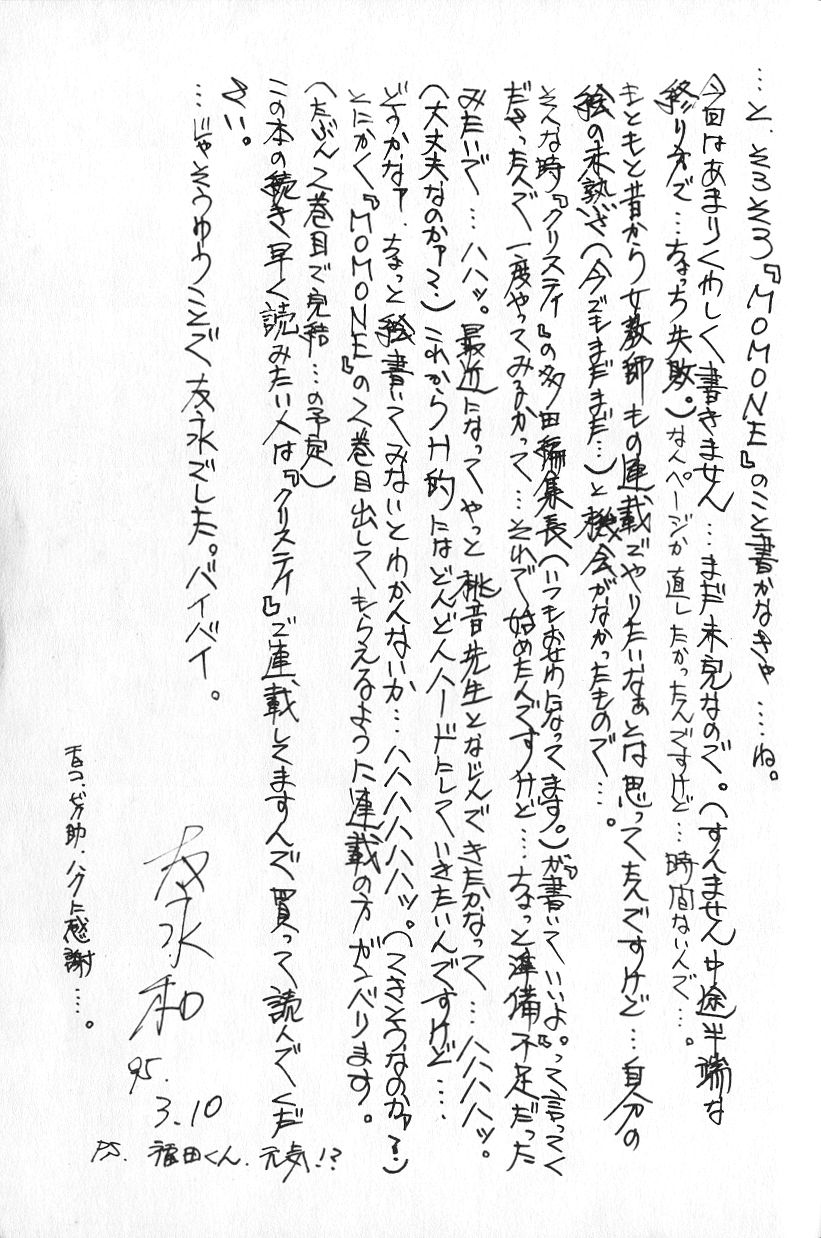 …と、そろそろ『MOMONE』のこと書かなきゃ…ね。
今回はあまりくわしく書きません…まだ未完なので。(すんません中途半端な
終り方で…ちょっち失敗。)なんページか直したかったんですけど…時間ないんで…。
もともと昔から女教師もの連載でやりたいなぁとは思ってたんですけど…自分の
絵の未熟さ(今でもまだまだ…)と機会がなかったもので…。
そんな時『クリスティ』の多田編集長(いつもお世わになってます。)が『書いていいよ。』って言ってく
ださったんで、一度やってみるかって…それで始めたんですけど…ちょっと準備不足だった
みたいで…ハハッ。最近になってやっと桃音先生となじんできたかなって…ハハハハッ。
(大丈夫なのかァ?)これからH的にはどんどんハードにしていきたいんですけど…
どうかなァ、ちょっと絵書いてみないとわかんないか…ハハハハハハッ。(てきとうなのかァ?)
とにかく『MOMONE』の2巻目出してもらえるように連載の方ガンバります。
(たぶん2巻目で完結…の予定)
この本の続き早く読みたい人は『クリスティ』で連載してますんで買って読んでくだ
さい。
…じゃそうゆうことで友永でした。バイバイ。
友永和
95.
3.10
P.S. 福田くん、元気!?
助、ハクに感謝…。